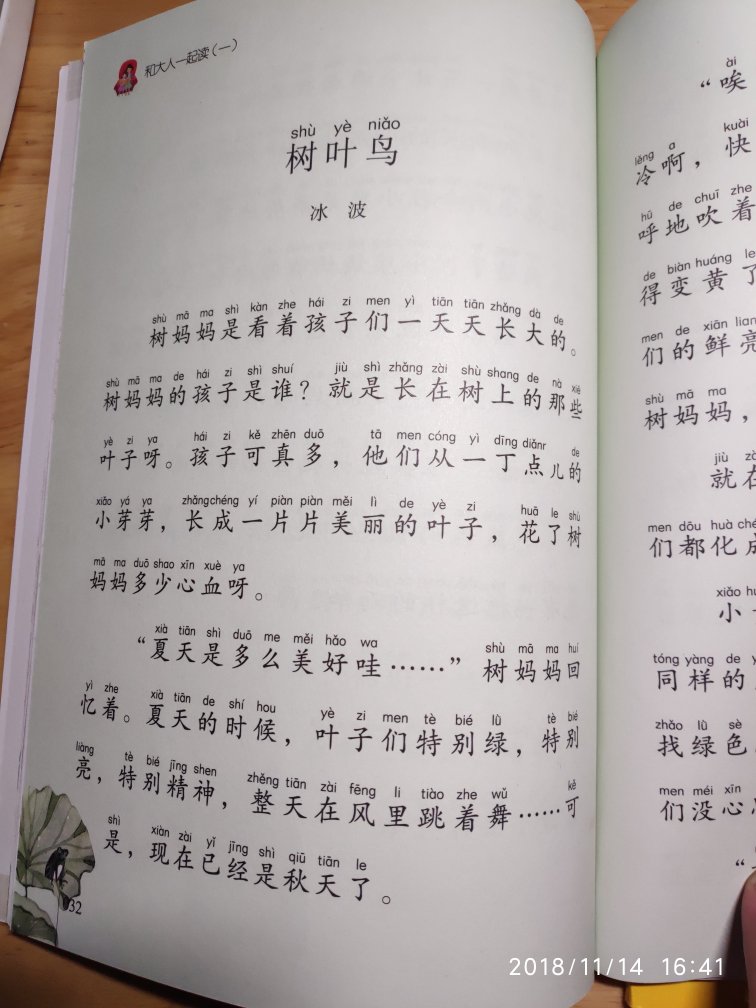 和大人一起读(一)
shù yè niǎo
树叶鸟
冰波
shù mā ma shì kàn zhe hái zi men yì tiān tiān zhǎng dà de
树妈妈是看着孩子们一天天长大的。
shù mā ma de hái zi shì shuí jiù shì zhǎng zài shù shang de nà xiē
树妈妈的孩子是谁？就是长在树上的那些
yè zi ya hái zi kě zhēn duō tā men cóng yì dīng diǎnr de
叶子呀。孩子可真多，他们从一丁点儿的
xiǎo yá ya zhǎngchéng yí piàn piàn měi lì de yè zi huā le shù
小芽芽，长成一片片美丽的叶子，花了树
mā ma duō shao xīn xuè ya
妈妈多少心血呀。
xià tiān shì duō me měi hǎo wa shù mā ma huí
“夏天是多么美好哇……”树妈妈回
yì zhe xià tiān de shí hou yè zi men tè bié lǜ tè bié
忆着。夏天的时候，叶子们特别绿，特别
liàng tè bié jīng shen zhěng tiān zài fēng li tiào zhe wǔ kě
亮，特别精神，整天在风里跳着舞……可
shì xiàn zài yǐ jīng shì qiū tiān le
是，现在已经是秋天了。
32
ài
“唉
lěng a kuài
冷啊，快
hū de chuī zhe
呼地吹着
de biàn huáng le
得变黄了
men de xiān liàng
们的鲜亮
shù mā ma
树妈妈，
jiù zài
就在
men dōu huà ché
们都化成
xiǎo
小
tóng yàng de y
同样的
zhǎo lǜ sè
找绿色
men méi xīn
们没心
“
2018/11/14 16:41